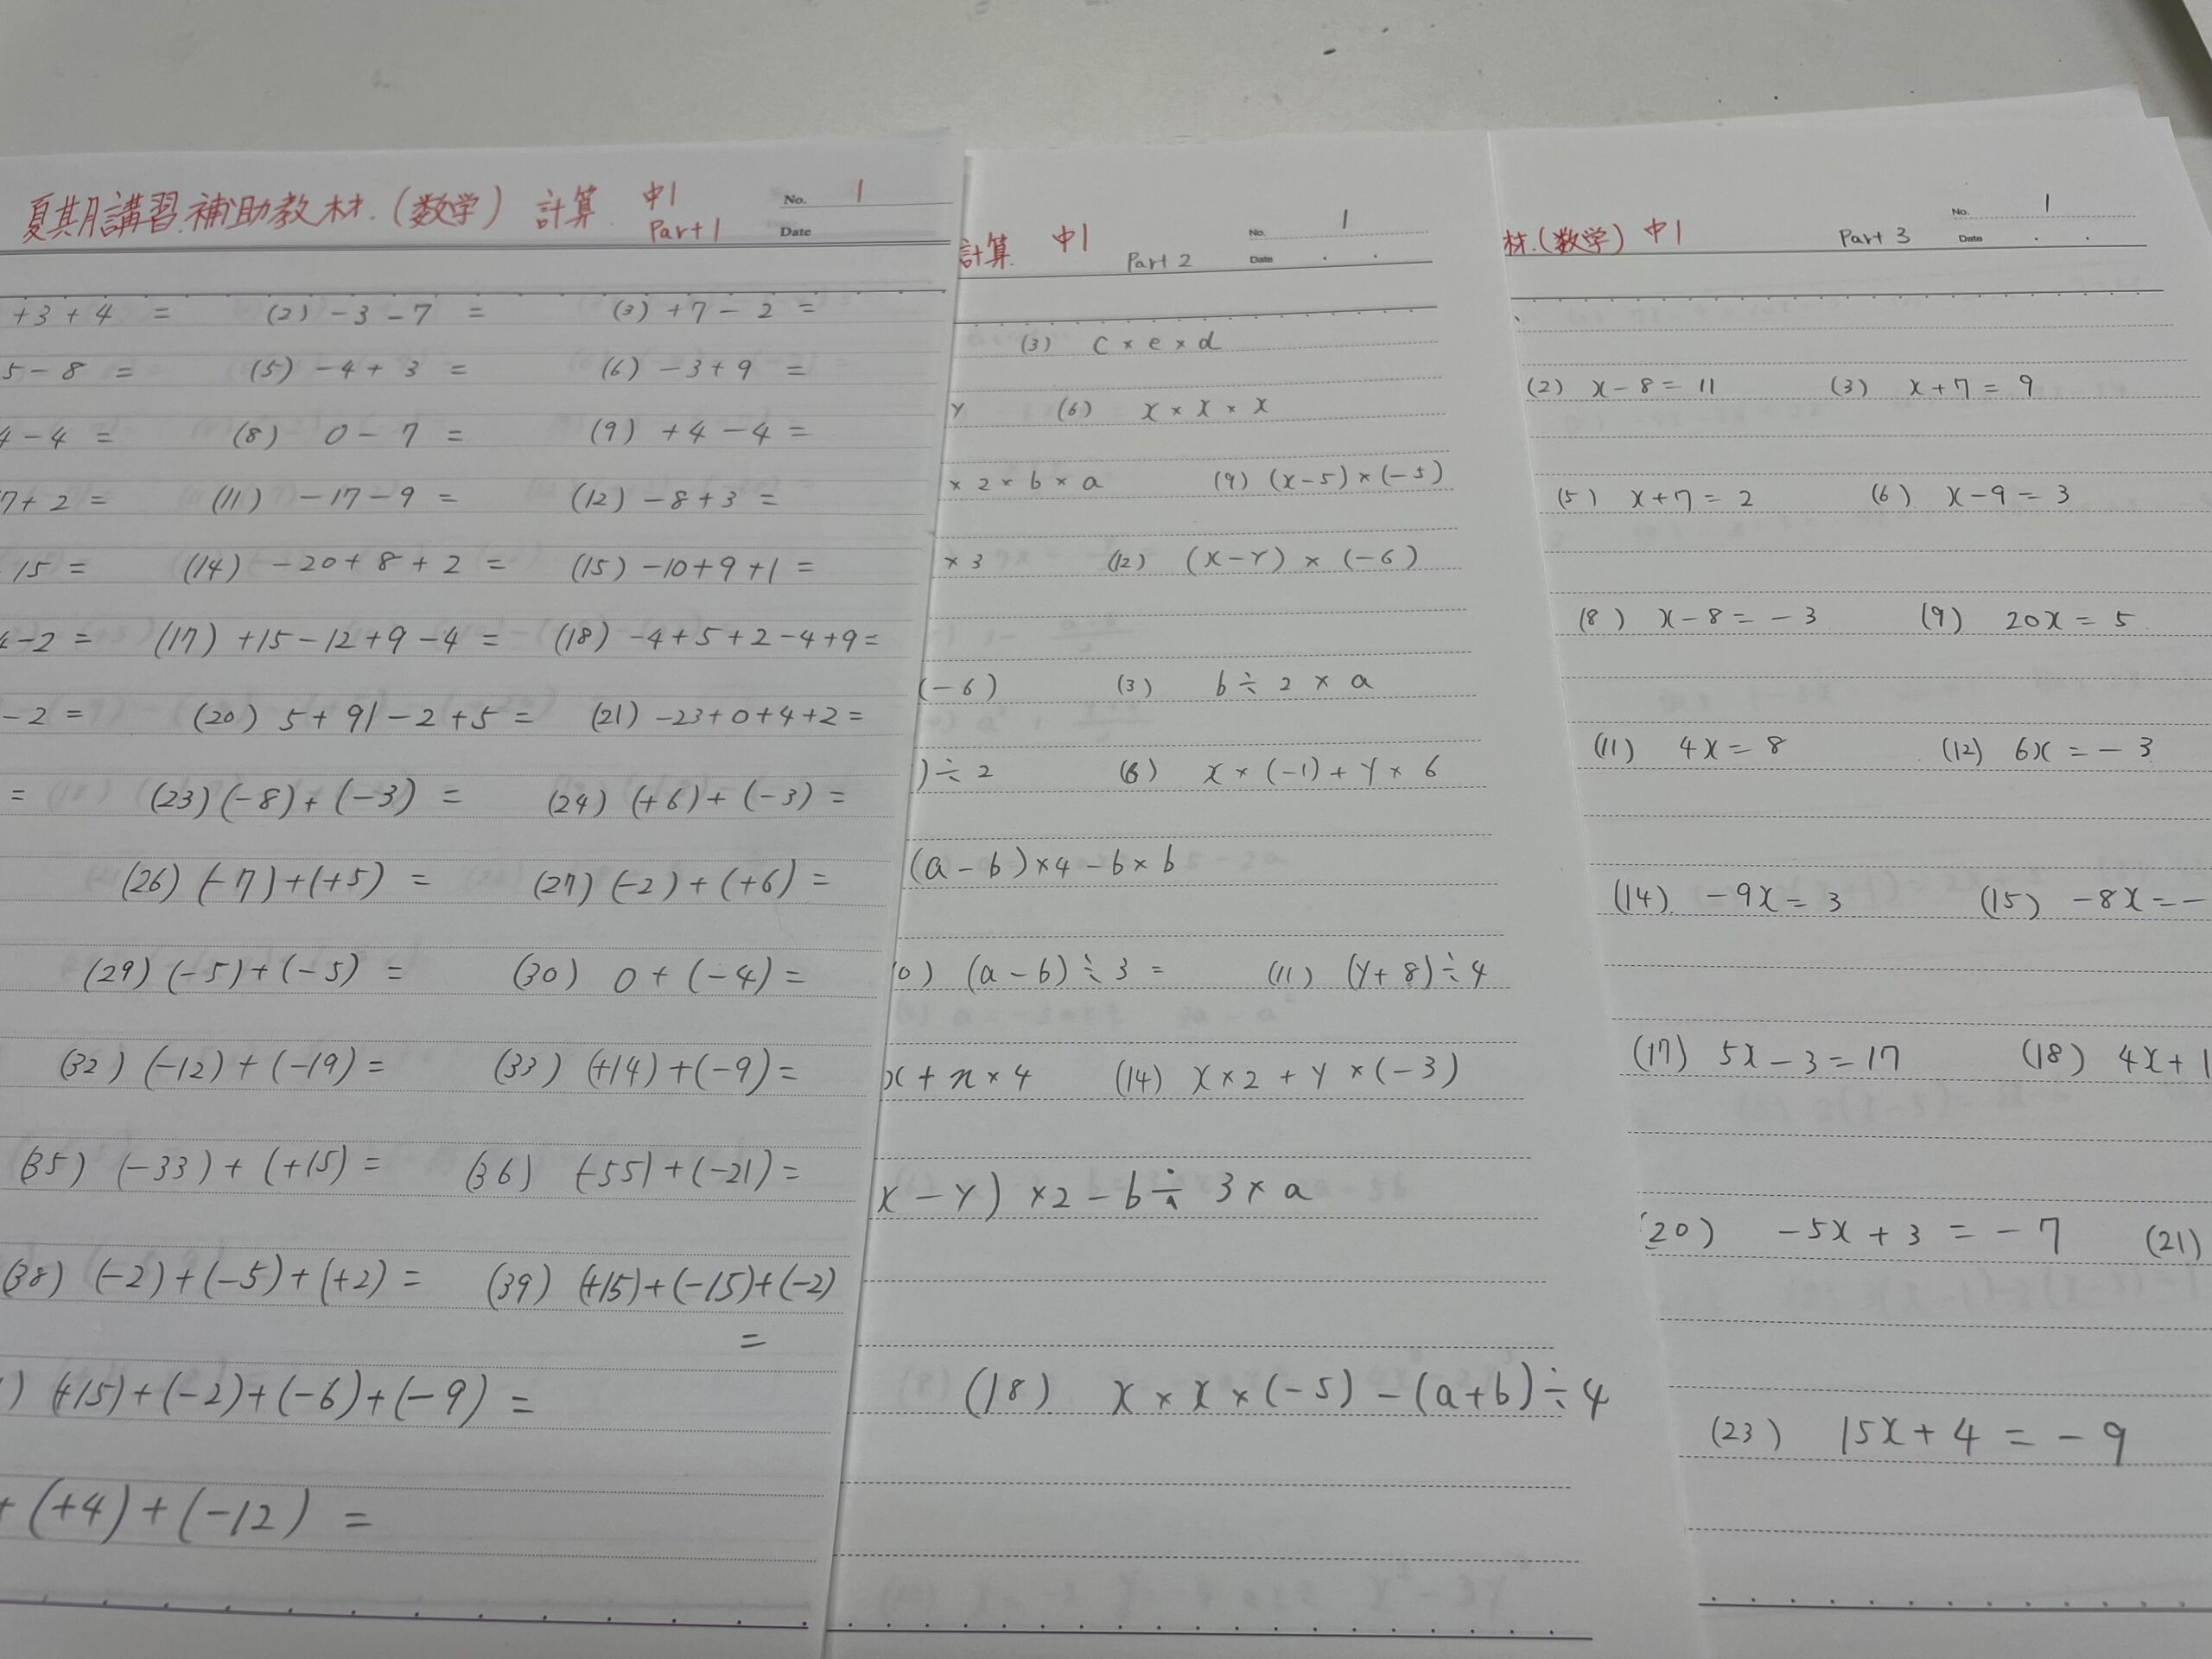 夏期講習補助教材.(数学) 計算 中1
Part1
No. 1
Date
+3+4 = (2) -3-7 = (3) +7-2 =
5-8 = (5) -4+3 = (6) -3+9 =
4-4 = (8) 0-7 = (9) +4-4 =
7+2 = (11) -17-9 = (12) -8+3 =
15 = (14) -20+8+2 = (15) -10+9+1 =
-2 = (17) +15-12+9-4 = (18) -4+5+2-4+9 =
-2 = (20) 5+91-2+5 = (21) -23+0+4+2 =
= (23) (-8)+(-3) = (24) (+6)+(-3) =
(26) (-7)+(+5) = (27) (-2)+(+6) =
(29) (-5)+(-5) = (30) 0+(-4) =
(32) (-12)+(-19) = (33) (+14)+(-9) =
(35) (-33)+(+15) = (36) (-55)+(-21) =
(38) (-2)+(-5)+(+2) = (39) (+15)+(-15)+(-2)
=
) (+15)+(-2)+(-6)+(-9) =
+(+4)+(-12) =
計算. 中1 Part 2
No. 1
Date
(3) c×e×d
Y (6) x×x×x
×2×b×a (9) (x-5)×(-5)
×3 (12) (x-Y)×(-6)
(-6) (3) b÷2×a
)÷2 (6) x×(-1)+Y×6
(a-b)×4-b×b
0) (a-b)÷3 = (11) (Y+8)÷4
x+n×4 (14) x×2+Y×(-3)
x-Y)×2-b÷3×a
(18) x×x×(-5)-(a+b)÷4
材.(数学) 中1 Part 3
No. 1
Date
(2) x-8=11 (3) x+7=9
(5) x+7=2 (6) x-9=3
(8) x-8=-3 (9) 20x=5
(11) 4x=8 (12) 6x=-3
(14) -9x=3 (15) -8x=-
(17) 5x-3=17 (18) 4x+1
(20) -5x+3=-7 (21)
(23) 15x+4=-9